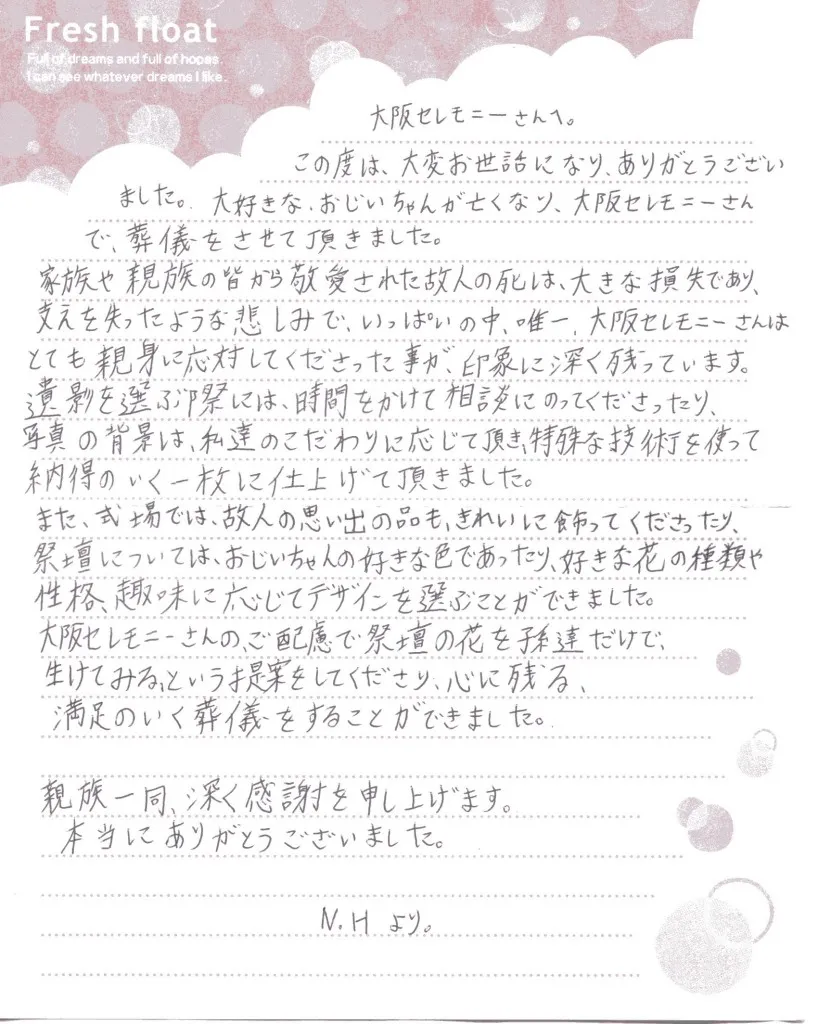 Fresh float
Full of dreams and full of hopes.
I can see whatever dreams I like.
大阪セレモニーさんへ。
この度は、大変お世話になり、ありがとうござい
ました。大好きな、おじいちゃんが亡くなり、大阪セレモニーさん
で、葬儀をさせて頂きました。
家族や親族の皆から敬愛された故人の死は、大きな損失であり、
支えを失ったような悲しみで、いっぱいの中、唯一、大阪セレモニーさんは
とても親身に応対してくださった事が、印象に深く残っています。
遺影を選ぶ際には、時間をかけて相談にのってくださったり、
写真の背景は、私達のこだわりに応じて頂き、特殊な技術を使って
納得のいく一枚に仕上げて頂きました。
また、式場では、故人の思い出の品も、きれいに飾ってくださったり、
祭壇については、おじいちゃんの好きな色であったり、好きな花の種類や
性格、趣味に応じてデザインを選ぶことができました。
大阪セレモニーさんの、ご配慮で祭壇の花を孫達だけで、
生けてみる、という提案をしてくださり、心に残る、
満足のいく葬儀をすることができました。
親族一同、深く感謝を申し上げます。
本当にありがとうございました。
N.H より。